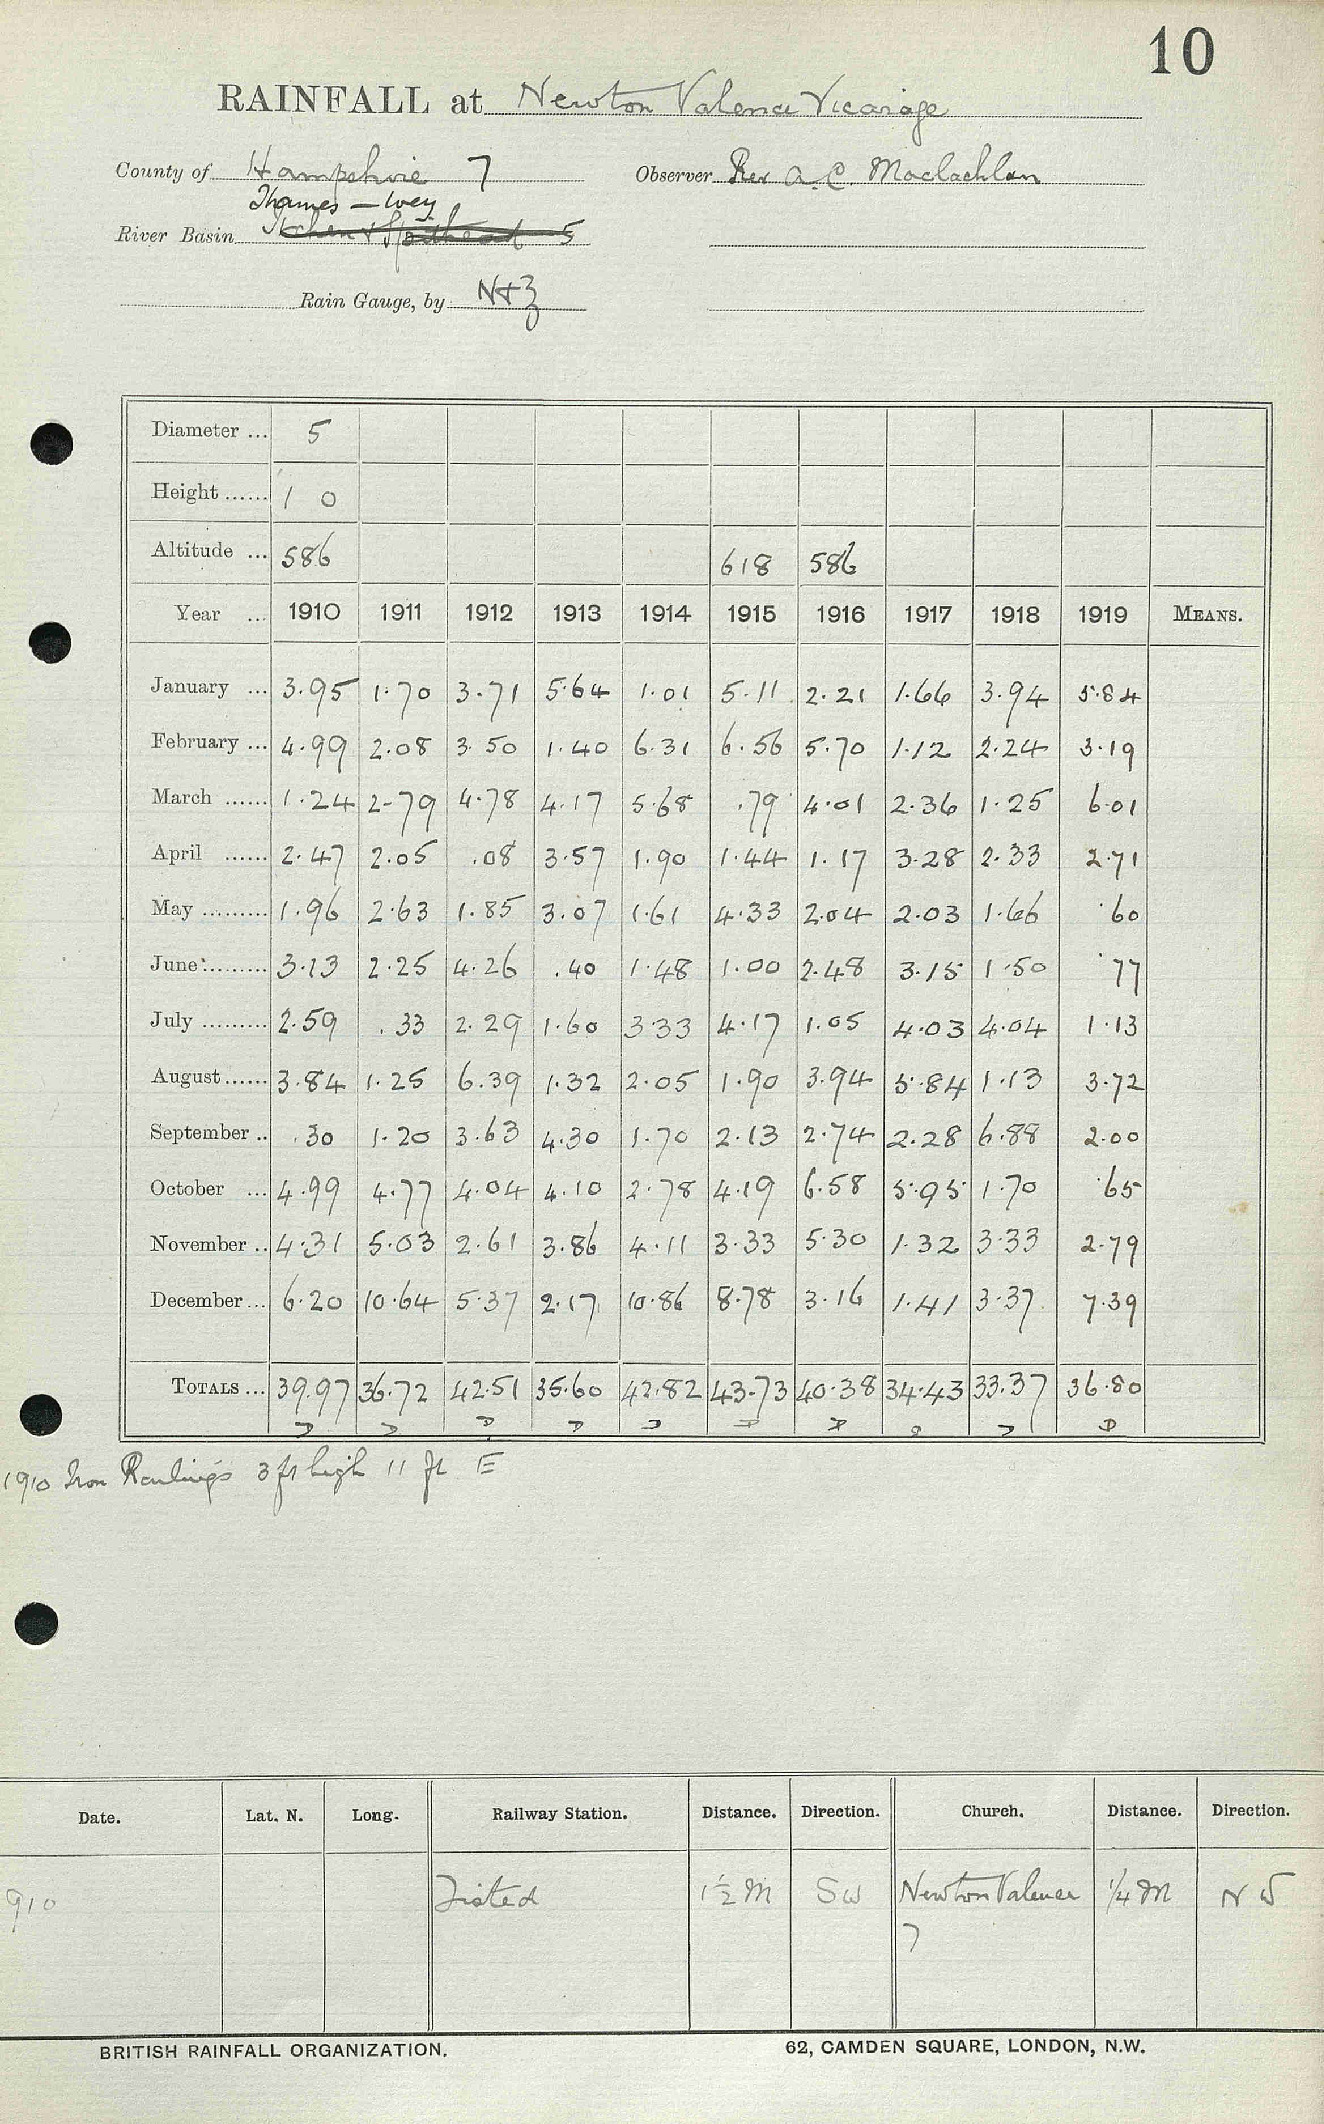 10
RAINFALL at Newton Valence Vicarage
County of Hampshire 7 Observer Rev A. C. Maclachlan
Thames - Wey
River Basin Itchen & Spithead 5
Rain Gauge, by N+Z
Diameter ... 5
Height ...... 1 0
Altitude ... 586 618 586
Year ... 1910 1911 1912 1913 1914 1915 1916 1917 1918 1919 MEANS.
January ... 3.95 1.70 3.71 5.64 1.01 5.11 2.21 1.66 3.94 5.84
February ... 4.99 2.08 3.50 1.40 6.31 6.56 5.70 1.12 2.24 3.19
March ...... 1.24 2.79 4.78 4.17 5.68 .79 4.01 2.36 1.25 6.01
April ...... 2.47 2.05 .08 3.57 1.90 1.44 1.17 3.28 2.33 2.71
May ......... 1.96 2.63 1.85 3.07 1.61 4.33 2.04 2.03 1.66 .60
June ......... 3.13 2.25 4.26 .40 1.48 1.00 2.48 3.15 1.50 .77
July ......... 2.59 .33 2.29 1.60 3.33 4.17 1.05 4.03 4.04 1.13
August ...... 3.84 1.25 6.39 1.32 2.05 1.90 3.94 5.84 1.13 3.72
September .. .30 1.20 3.63 4.30 1.70 2.13 2.74 2.28 6.88 2.00
October ... 4.99 4.77 4.04 4.10 2.78 4.19 6.58 5.95 1.70 .65
November .. 4.31 5.03 2.61 3.86 4.11 3.33 5.30 1.32 3.33 2.79
December ... 6.20 10.64 5.37 2.17 10.86 8.78 3.16 1.41 3.37 7.39
TOTALS ... 39.97 36.72 42.51 35.60 42.82 43.73 40.38 34.43 33.37 36.80
1910 Iron Railings 3 ft high 11 ft E
Date. Lat. N. Long. Railway Station. Distance. Direction. Church. Distance. Direction.
910 Tisted 1½ M SW Newton Valence 1/4 M N W
7
BRITISH RAINFALL ORGANIZATION. 62, CAMDEN SQUARE, LONDON, N.W.